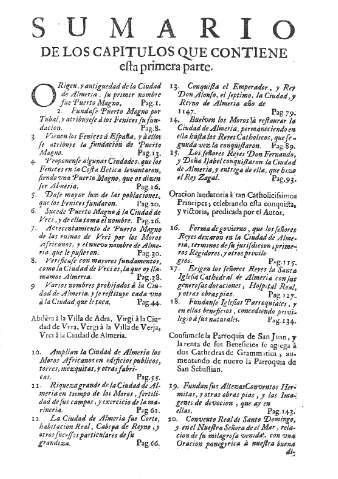 SUMARIO
DE LOS CAPITULOS QUE CONTIENE
esta primera parte.
ORigen, y antiguedad de la Ciudad
de Almeria: su primer nombre
fue Puerto Magno, Pag.1.
2. Fundase Puerto Magno por
Tubal, y atribuyese à los Fenices su fun-
dacion. Pag.8.
3 Vienen los Fenices à España, y à estos
se atribuye la fundacion de Puerto
Magno. Pag.13.
4. Proponense algunas Ciudades, que los
Fenices en la Costa Betica levantaron,
fundaron Puerto Magno, que os dizen
ser Almeria. Pag.16.
5. Dase mayor luz de las poblaciones,
que los Fenices fundaron. Pag.20.
6. Sucede Puerto Magno à la Ciudad de
Vrci, y de ella toma el nombre. Pag.26.
7. Acrecentamiento de Puerto Magno
de las ruinas de Vrci por los Moros
Africanos, y el nuevo nombre de Alme-
ria, que le pusieron. Pag.30.
8. Verificase con mayores fundamentos,
como la Ciudad de Vrci es, la que oy lla-
mamos Almeria. Pag.38.
9 Varios nombres prohijados à la Ciudad
de Almeria, y se restituye cada uno
à la Ciudad que le tiene. Pag.44.
Abdéra à la Villa de Adra, Virgi à la Ciu-
dad de Vera, Vergi à la Villa de Verja,
Vrci à la Ciudad de Almeria.
10. Amplian la Ciudad de Almeria los
Moros Africanos en edificios publicos,
torres, mezquitas, y otras fabri-
cas. Pag.55.
11. Riqueza grande de la Ciudad de Al-
meria en tiempo de los Moros, fertili-
dad de sus campos, y exercicio de la ma-
rineria. Pag 61.
12. La Ciudad de Almeria fue Corte,
habitacion Real, Cabeça de Reyno, y
otros successos particulares de su
grandeza. Pag.66.
13. Conquista el Emperador, y Rey
Don Alonso, el septimo, la Ciudad, y
Reyno de Almeria año de
1147. Pag.79.
14. Buelven los Moros à restaurar la
Ciudad de Almeria, permaneciendo en
ella hasta los Reyes Catholicos, que se-
gunda vez la conquistaron. Pag.89.
15. Los señores Reyes Don Fernando,
y Doña Isabel conquistaron la Ciudad
de Almeria, y entrega de ella, que hizo
el Rey Zagal. Pag.95.
Oracion laudatoria à tan Catholicissimos
Principes; celebrando esta conquista
y victoria, predicada por el Autor.
16. Forma de govierno, que los señores
Reyes dexaron en la Ciudad de Alme-
ria, terminos de su jurisdiccion, prime-
ros Regidores, y otros previle-
gios. Pag.115.
17. Erigen los señores Reyes la Santa
Iglesia Cathedral de Almeria con sus
generosas dotaciones, Hospital Real,
y otras obras pias. Pag 127.
18. Fundanse Iglesias Parroquiales, y
en ellas beneficios, concediendo privi-
legio à sus naturales. Pag.134.
Consumese la Parroquia de San Juan, y
la renta de sus Beneficios se agrega à
dos Cathedras de Grammatica, au-
mentando de nuevo la Parroquia de
San Sebastian.
19. Fundanse Altenas Conventos Her-
mitas, y otras obras pias, y las Ima-
genes de devocion, que ay en
ellas. Pag.143.
20. Convento Real de Santo Domingo,
y en el Nuestra Señora de el Mar, rela-
cion de su milagrosa venida, con una
Oracion panegyrica à nuestra buena
di-